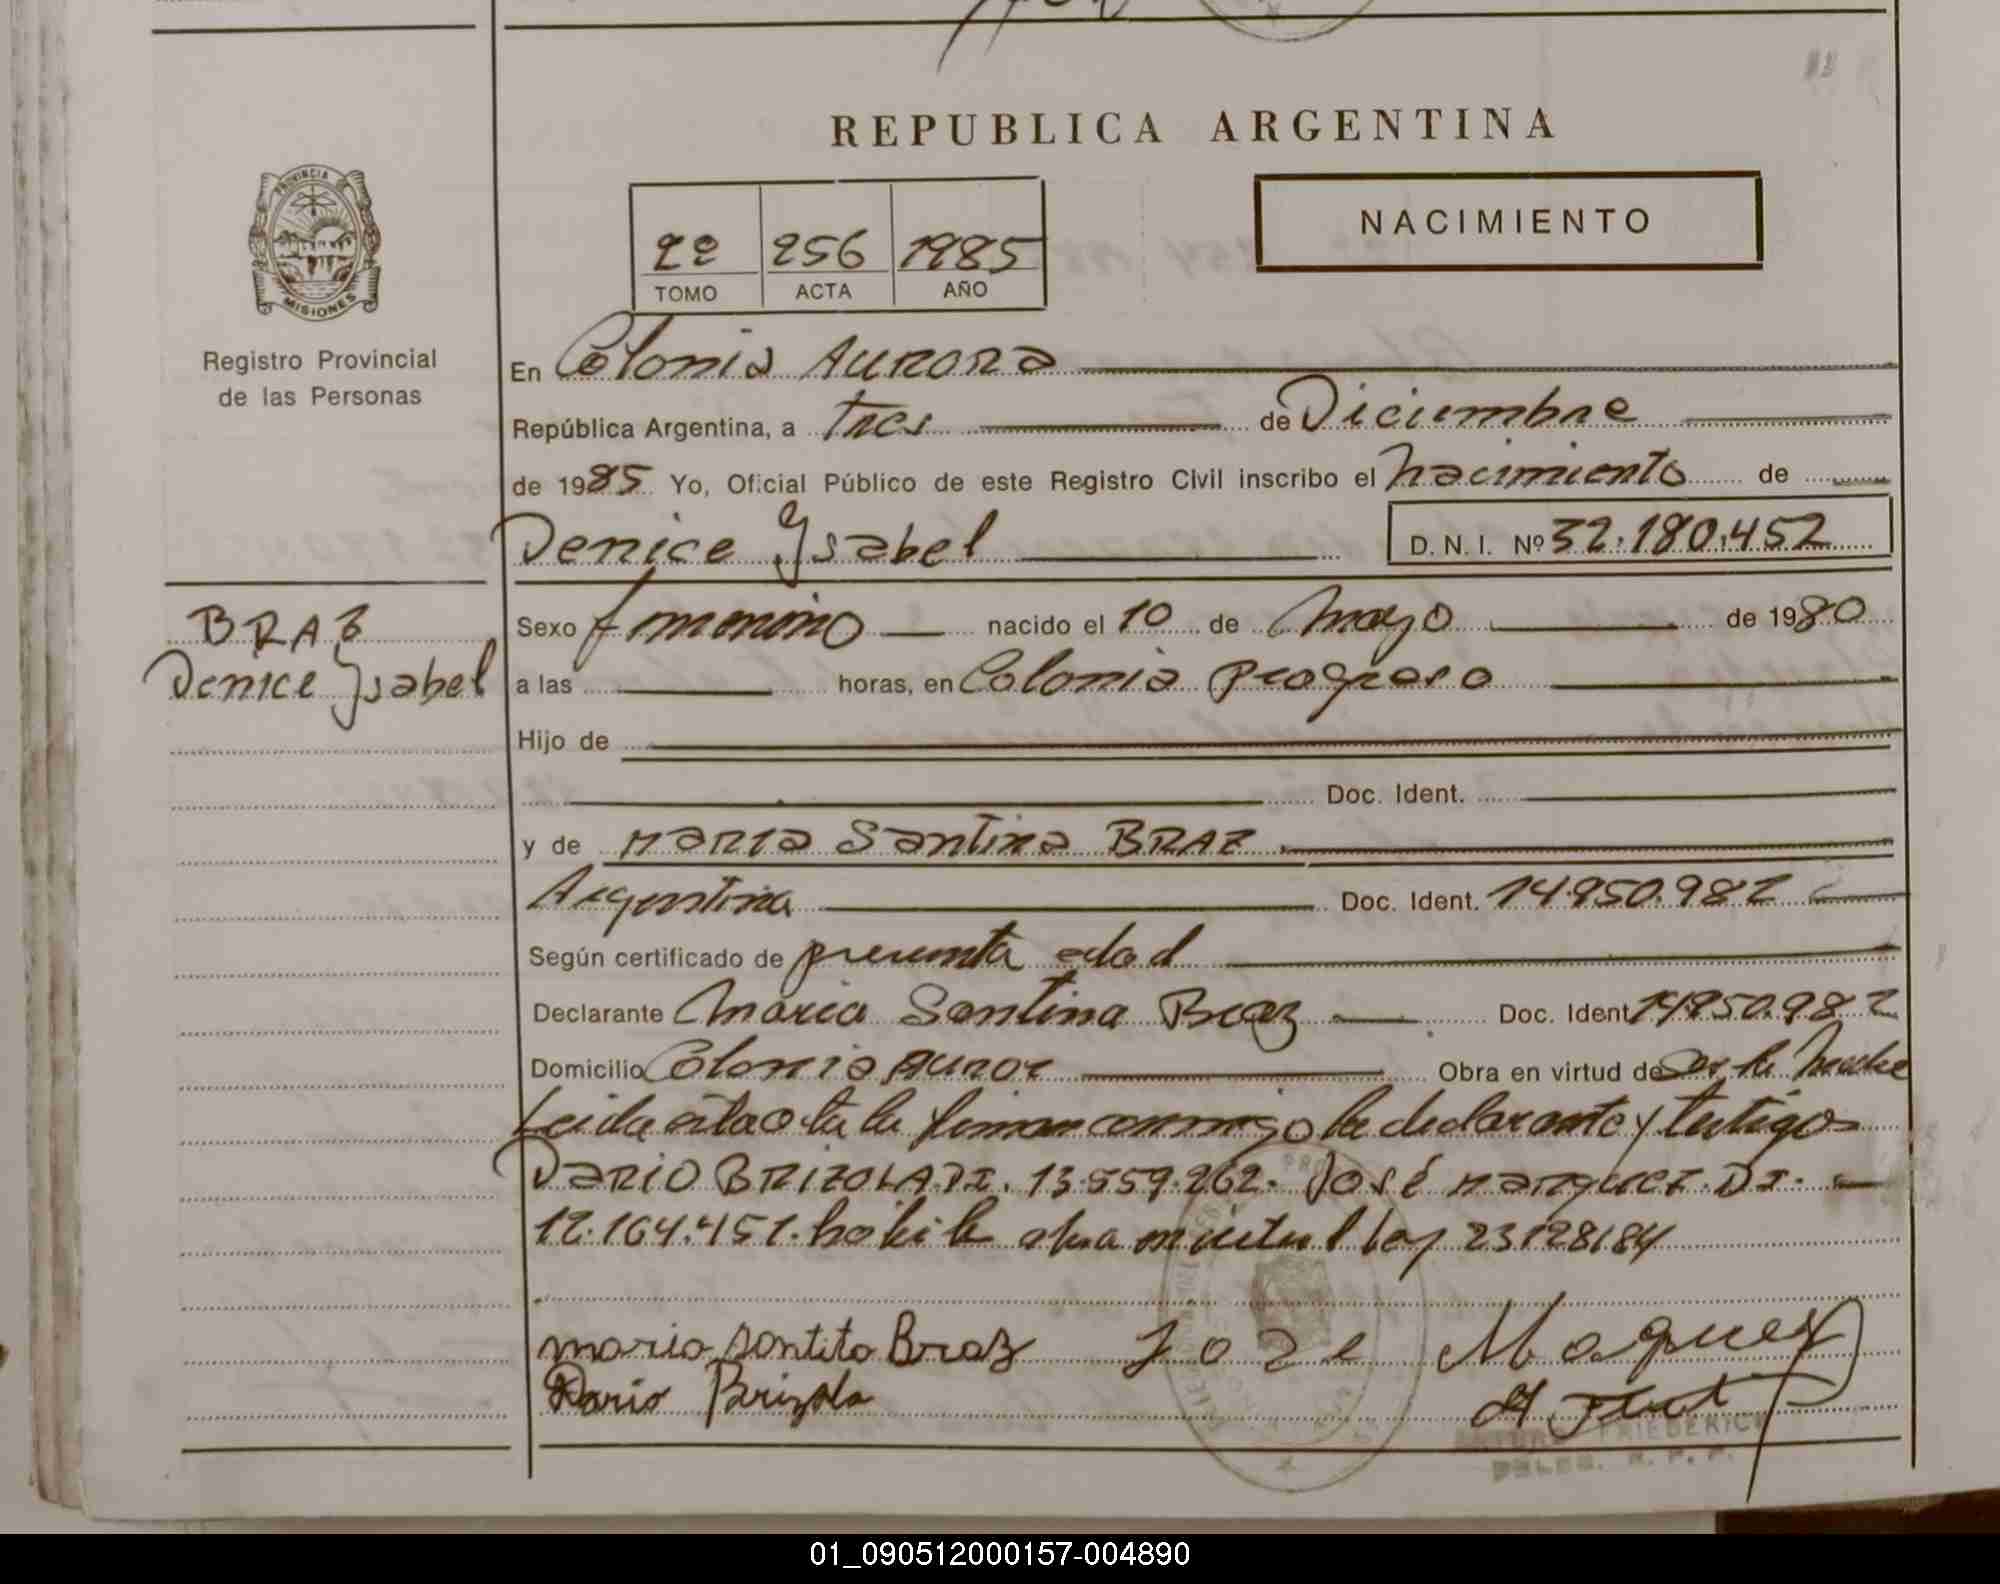 REPUBLICA ARGENTINA
PROVINCIA DE
MISIONES
Registro Provincial
de las Personas
2º 256 1985
TOMO ACTA AÑO
NACIMIENTO
En Colonia Aurora
República Argentina, a Tres de Diciembre
de 1985 Yo, Oficial Público de este Registro Civil inscribo el Nacimiento de
Denice Ysabel D. N. I. Nº 32.180.452
BRAZ
Denice Ysabel
Sexo femenino nacido el 10 de Mayo de 1980
a las horas, en Colonia Progreso
Hijo de
Doc. Ident.
y de Maria Santina BRAZ
Argentina Doc. Ident. 14.950.982
Según certificado de presunta edad
Declarante Maria Santina Braz Doc. Ident 14.950.982
Domicilio Colonia Auror Obra en virtud de Ser la Madre
Leida el acta la firman conmigo la declarante y testigos
Dario BRIZOLA DI. 13.559.262. José Marquez. DI.
12.164.451. obra en virtud ley 23128/84
maria santita Braz Joze Maquez
Dario Brizola
FRIEDERICH
DELEG. R. P. P.
01_090512000157-004890